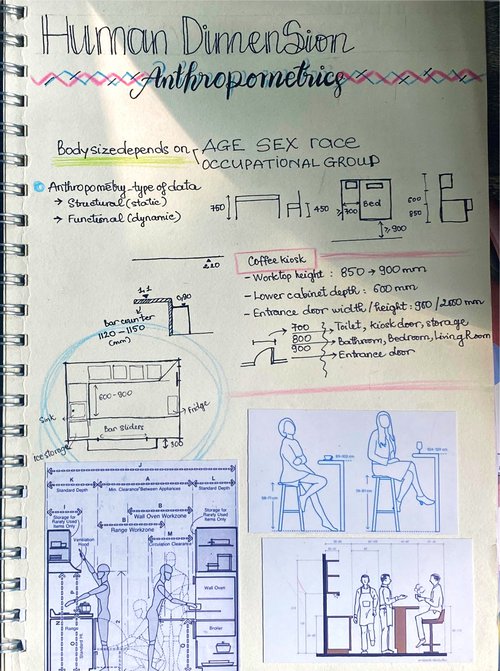 Human Dimension
Anthropometrics
Body size depends on AGE SEX race
OCCUPATIONAL GROUP
Anthropometry-type of data
→ Structural (static)
→ Functional (dynamic)
750
450
≥700
Bed
≥900
600
850
2.20
Coffee kiosk
- Worktop height : 850 → 900 mm
- Lower cabinet depth : 600 mm
- Entrance door width/height: 900/2000 mm
700 → Toilet, kiosk door, storage
800 → Bathroom, Bedroom, Living Room
900 → Entrance door
1.1
0.90
Bar counter
1120 - 1150
(mm)
600-900
Sink
Fridge
Bar Sliders
Ice storage
300
J
K
A
L
Standard Depth
Min. Clearance Between Appliances
Standard Depth
Storage for
Rarely Used
Items Only
B
Wall Oven Workzone
B
Range Workzone
M
Circulation Clearance
Storage for
Rarely Used
Items Only
Ventilation
Hood
Wall Oven
Range
Broiler